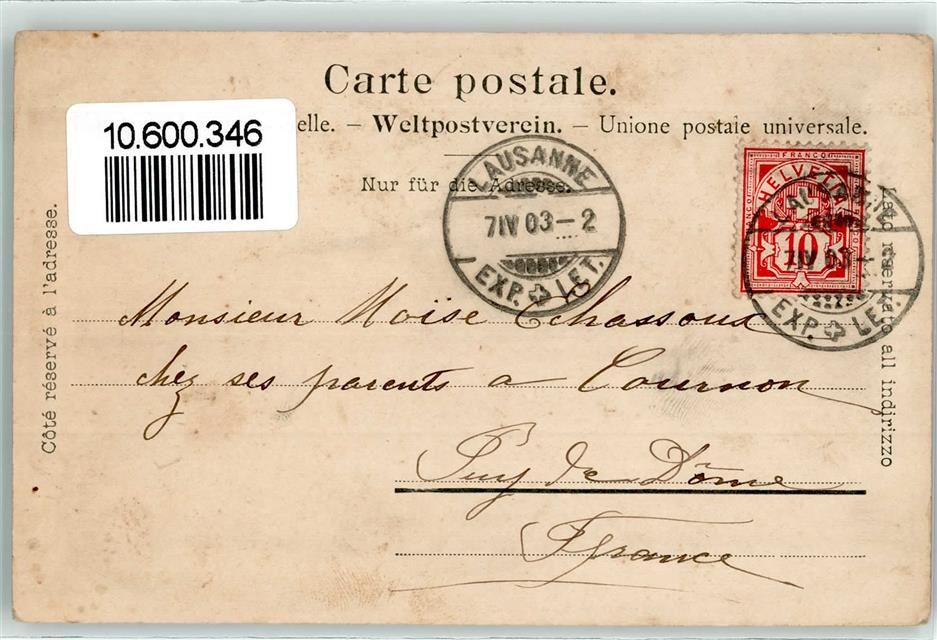 Carte postale.
10.600.346
elle. – Weltpostverein. – Unione postale universale.
Nur für die Adresse.
LAUSANNE
7 IV 03 – 2
EXP. LET.
FRANCO
HELVETIA
10
7 IV 03
EXP. LET.
Côté réservé à l'adresse.
Lato riservato all indirizzo
Monsieur Moïse Echassoux
chez ses parents a Cournon
Puy de Dôme
France